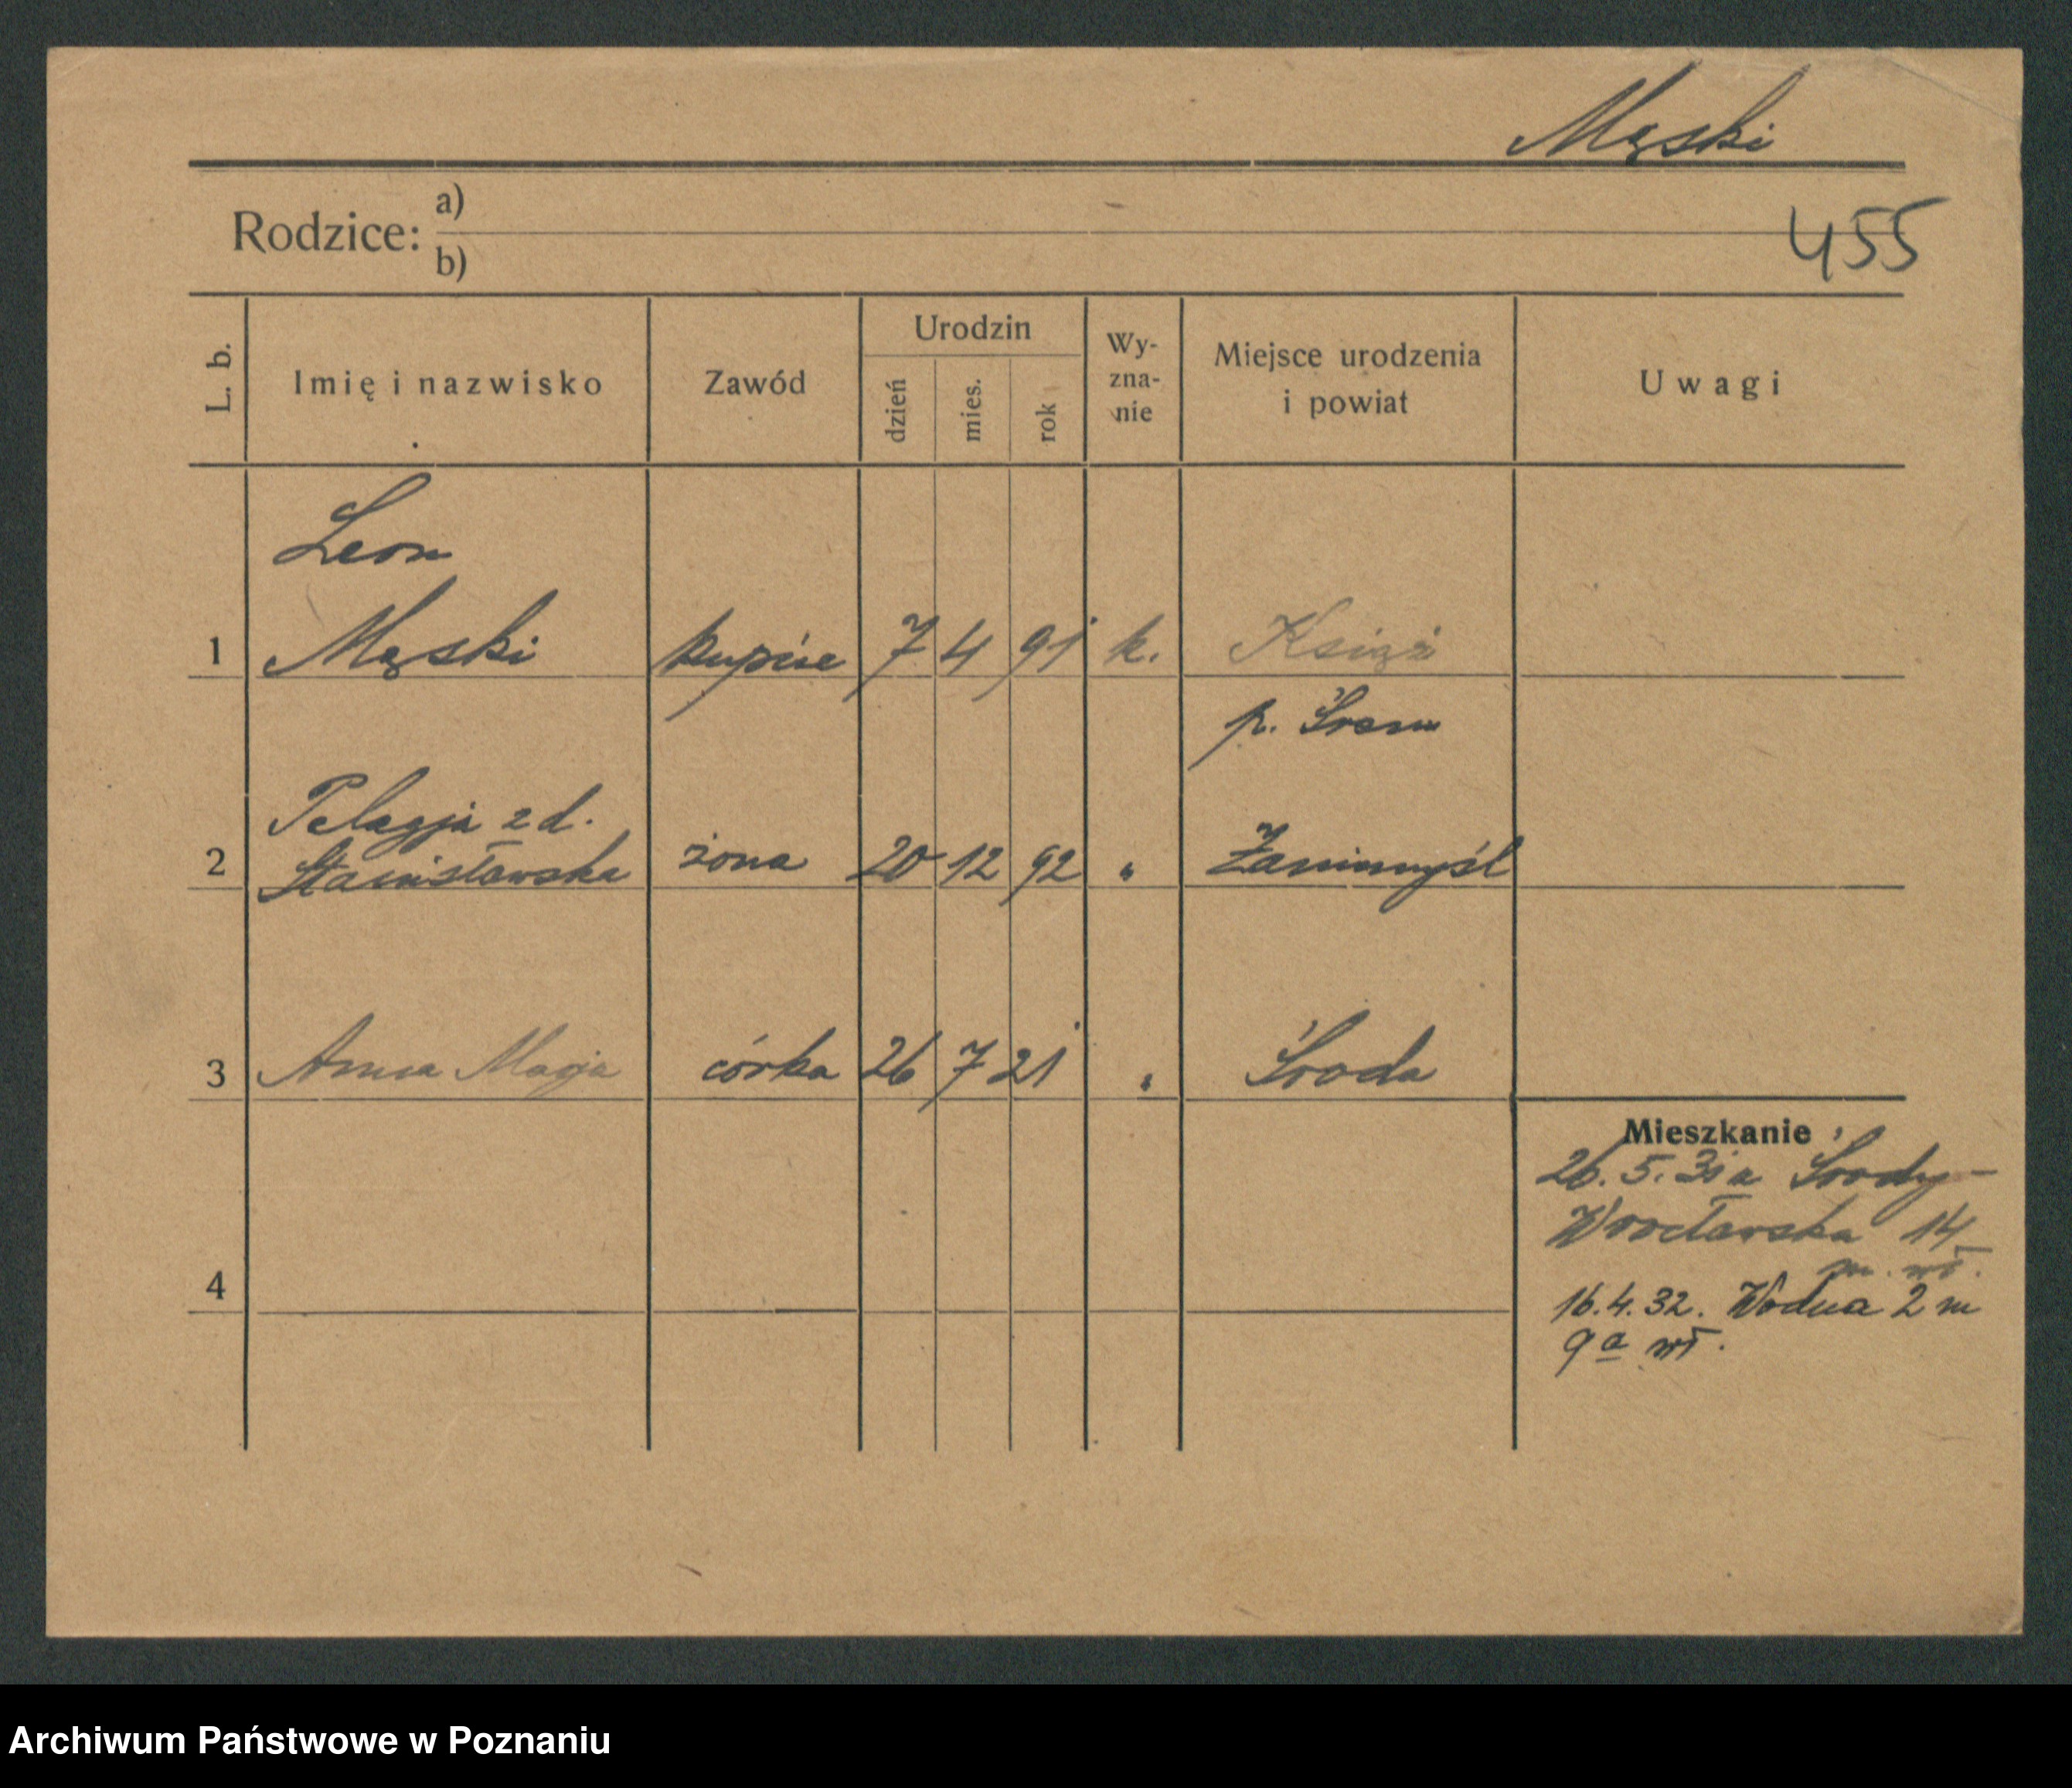 Męski
Rodzice: a)
b)
455
L. b.
Imię i nazwisko
Zawód
Urodzin
dzień
mies.
rok
Wy-
zna-
nie
Miejsce urodzenia
i powiat
Uwagi
Leon
1 Męski kupiec 7 4 91 k. Książ
p. Śrem
Pelagja z d.
2 Stanisławska żona 20 12 92 " Zaniemyśl
3 Anna Marja córka 26 7 21 " Środa
Mieszkanie
26.5.31 z Środy -
Wrocławska 14
m. wł.
4
16.4.32. Wodna 2 m
9a wł.
Archiwum Państwowe w Poznaniu